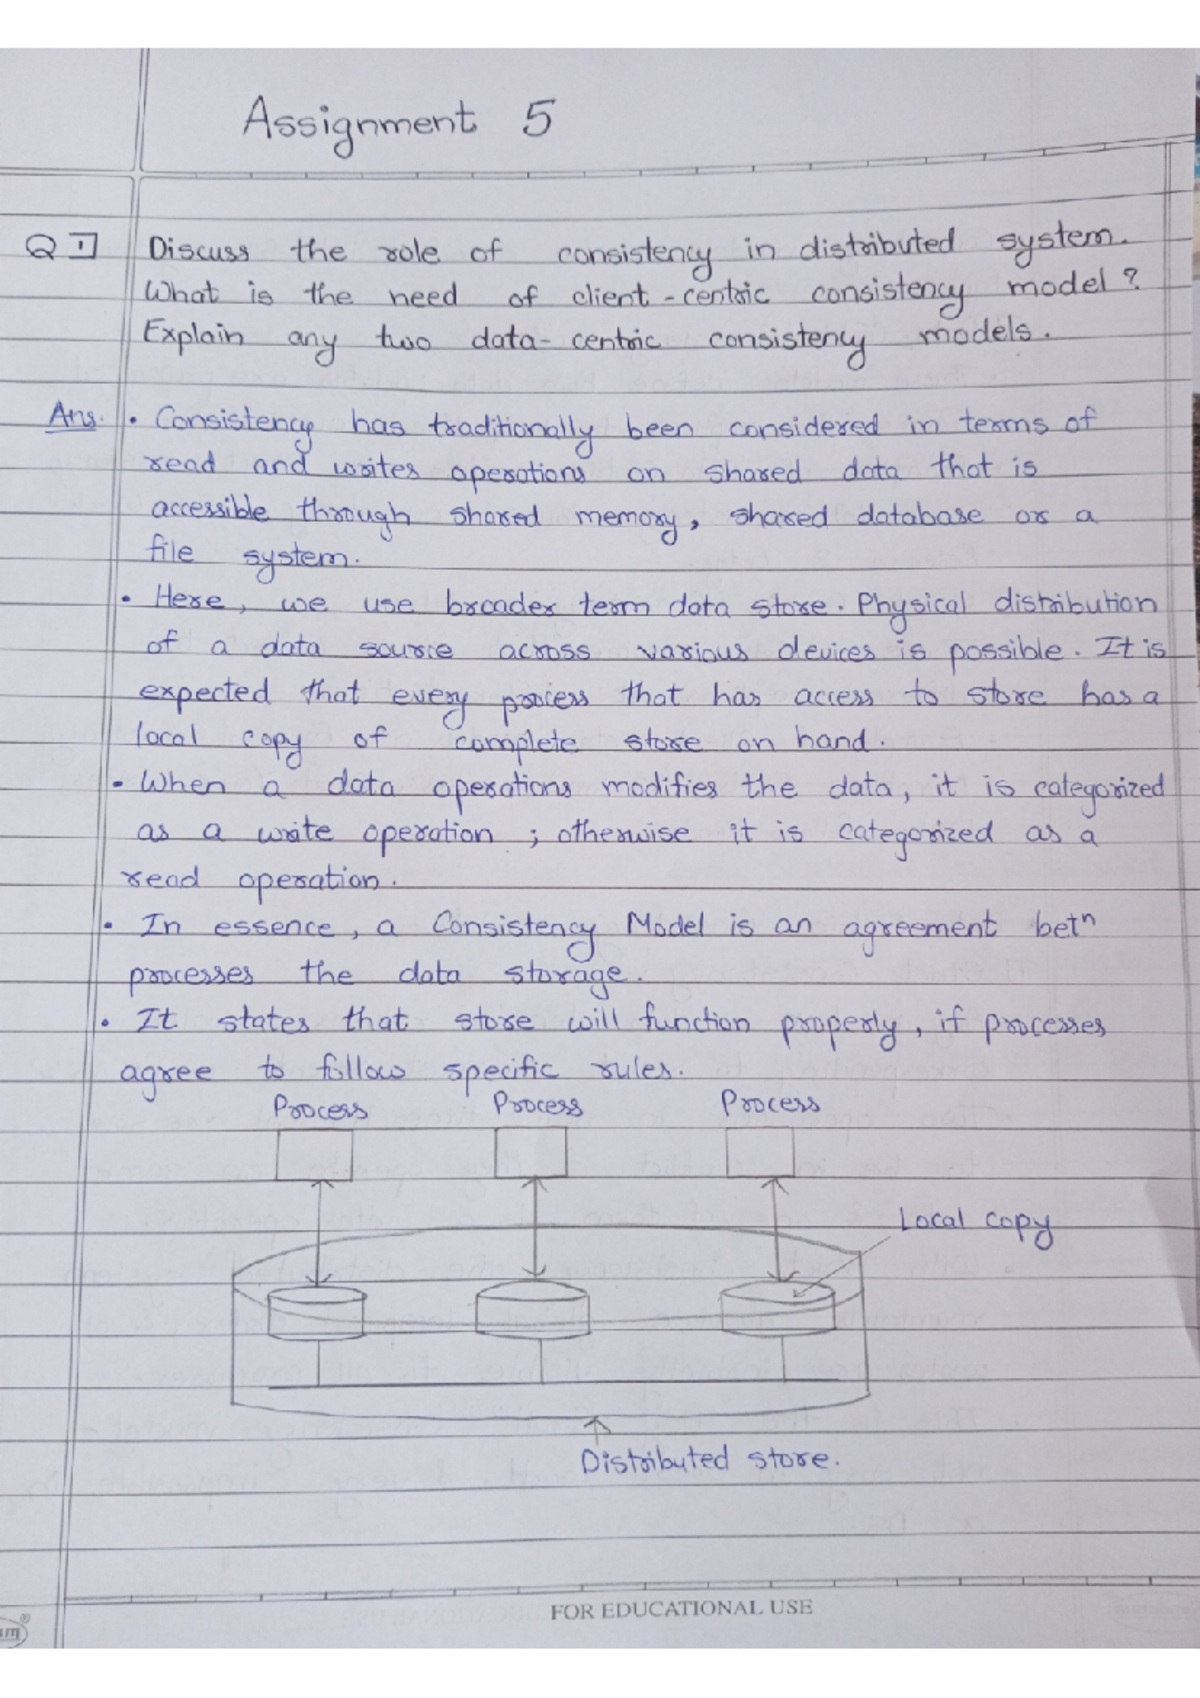 Assignment 5
Q 1] Discuss the role of consistency in distributed system.
What is the need of client-centric consistency model?
Explain any two data-centric consistency models.
Ans. • Consistency has traditionally been considered in terms of
read and writes operations on shared data that is
accessible through shared memory, shared database or a
file system.
• Here, we use broader term data store. Physical distribution
of a data source across various devices is possible. It is
expected that every process that has access to store has a
local copy of complete store on hand.
• When a data operations modifies the data, it is categorized
as a write operation ; otherwise it is categorized as a
read operation.
• In essence, a Consistency Model is an agreement betⁿ
processes the data storage.
• It states that store will function properly, if processes
agree to follow specific rules.
Process Process Process
Local copy
Distributed store.
FOR EDUCATIONAL USE